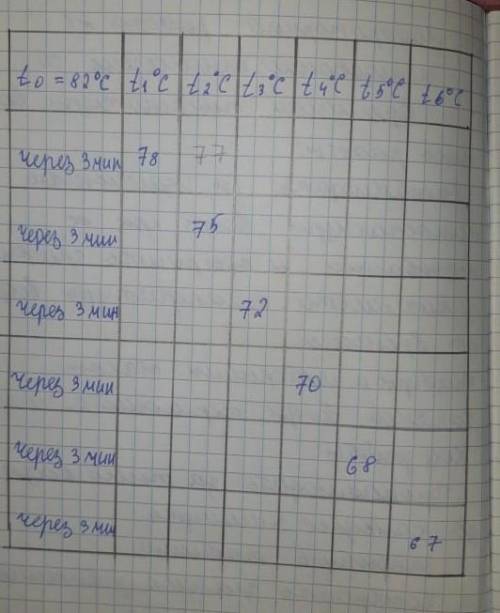 t0 = 82°C t1°C t2°C t3°C t4°C t5°C t6°C
через 3 мин 78 77
через 3 мин 75
через 3 мин 72
через 3 мин 70
через 3 мин 68
через 3 мин 67